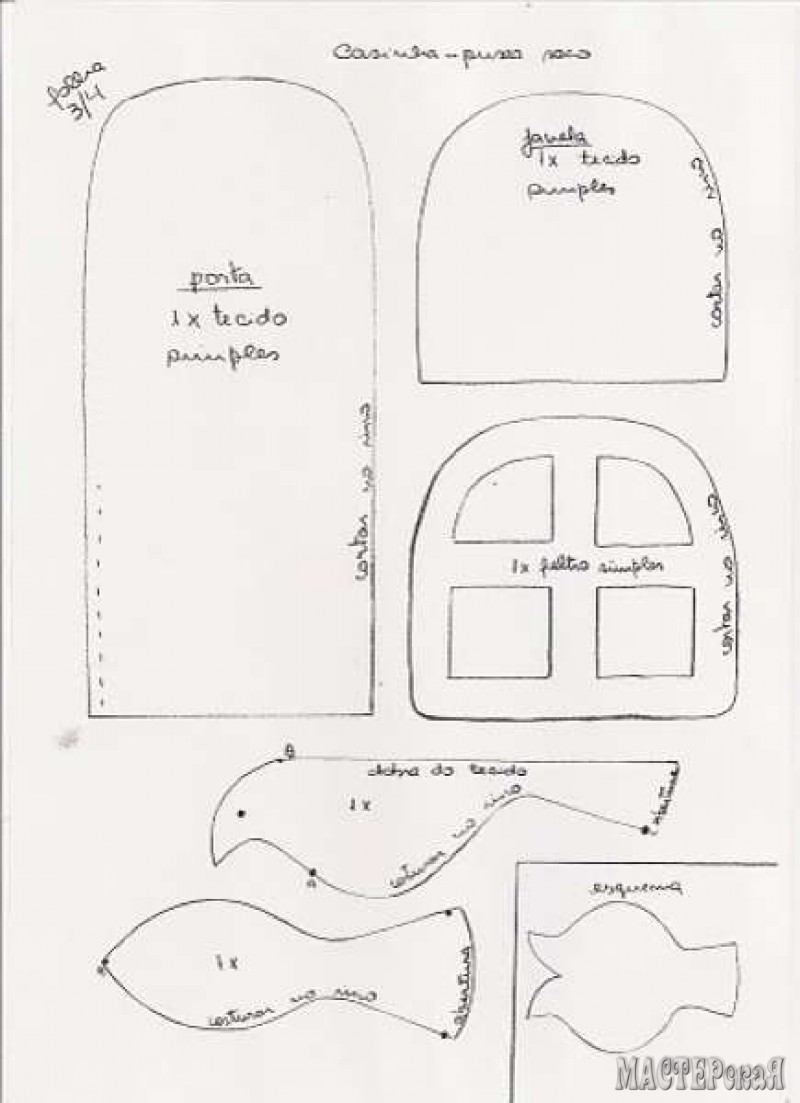 Casinha - puxa saco
folha
3/4
porta
1x tecido
simples
cortar no risco
janela
1x tecido
simples
cortar no risco
1x feltro simples
cortar no risco
B
dobra do tecido
1x
costurar no risco
abertura
A
A
1x
costurar no risco
abertura
esquema
МАСТЕРская